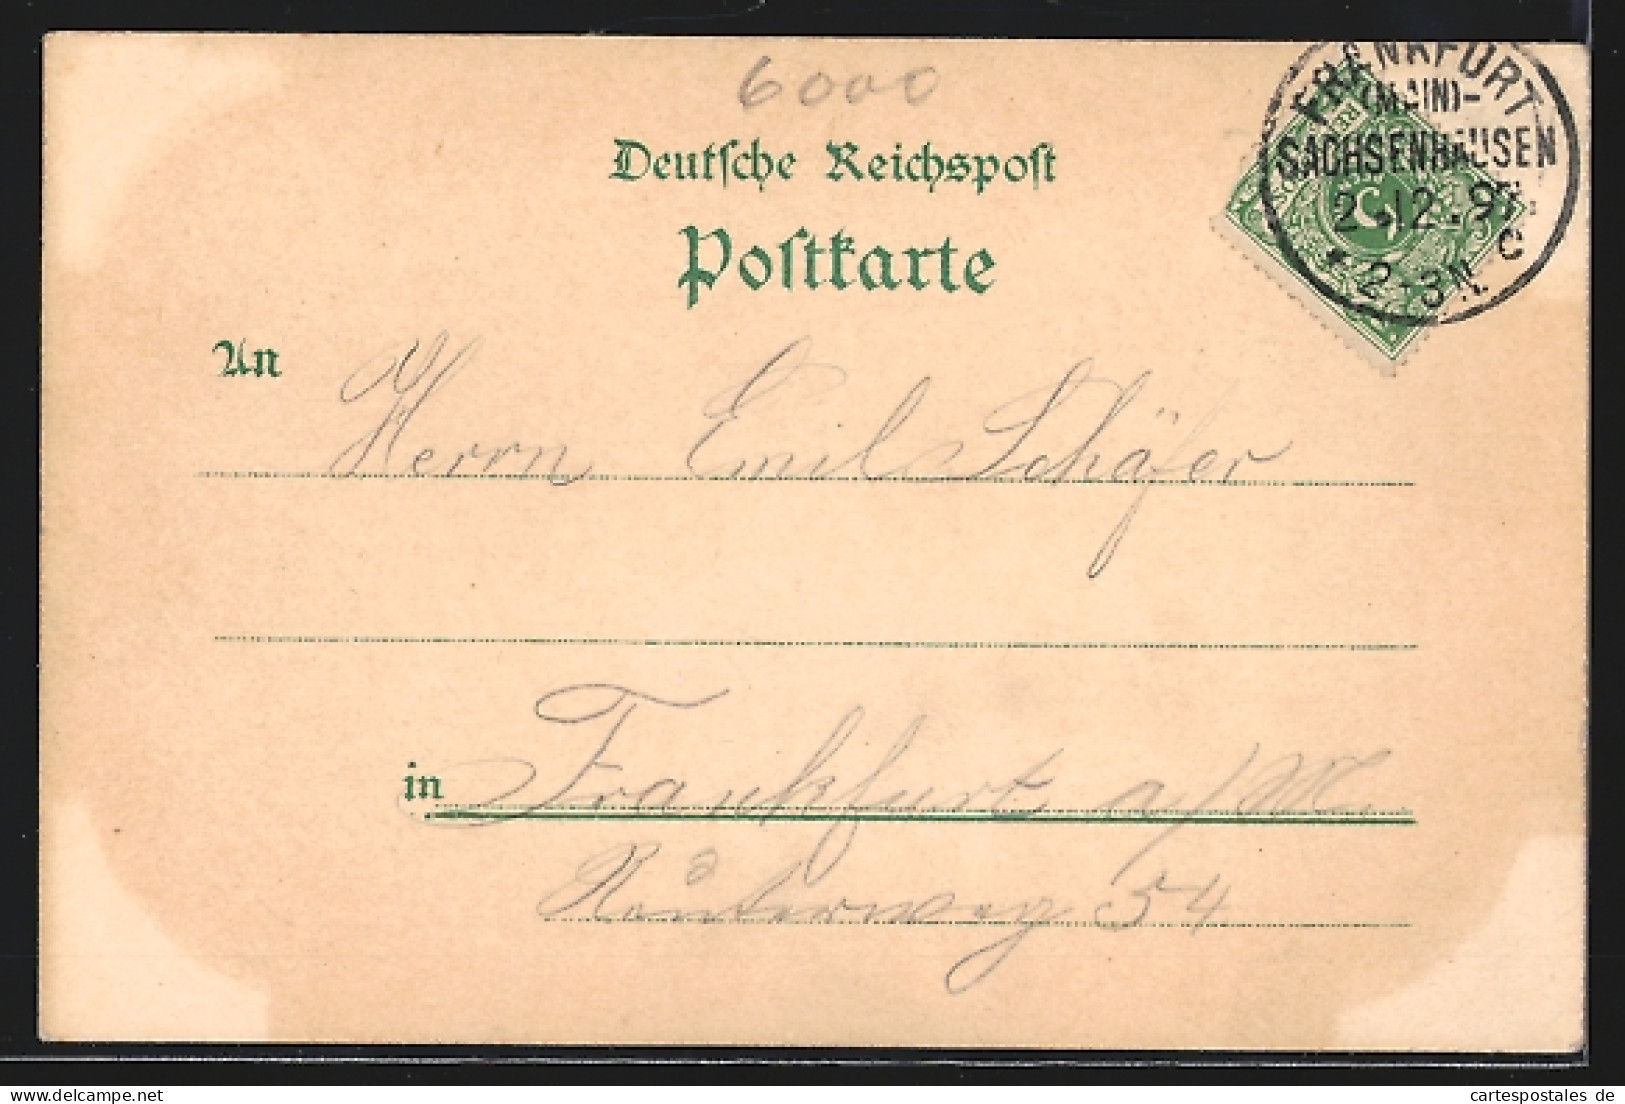 6000
Deutsche Reichspost
Postkarte
FRANKFURT
(MAIN)-
SACHSENHAUSEN
2.12.97.
* 2-3N. C
5
An Herrn Emil Schäfer
in Frankfurt a/M.
54
cartespostales de